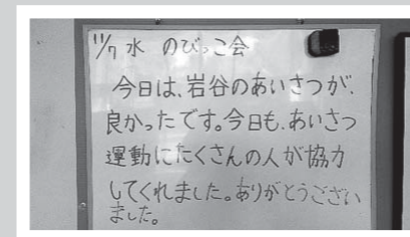 11/7 水 のびっこ会
今日は、岩谷のあいさつが、
良かったです。今日も、あいさつ
運動にたくさんの人が協力
してくれました。ありがとうござい
ました。